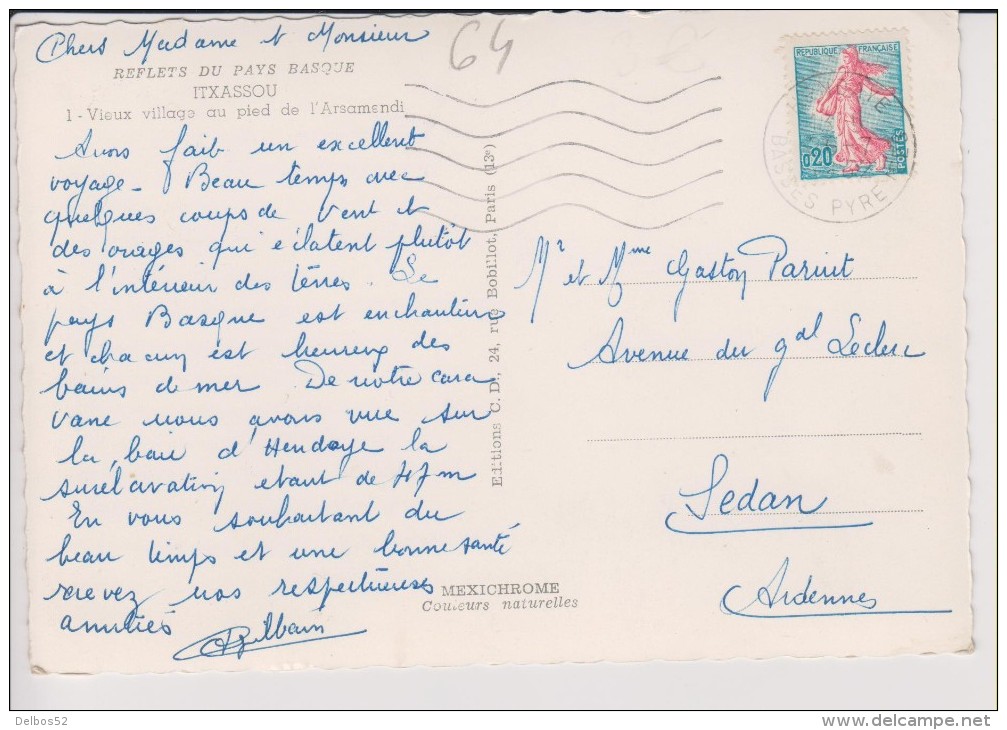 Chers Madame et Monsieur
64
REFLETS DU PAYS BASQUE
ITXASSOU
1 - Vieux village au pied de l'Arsamendi
Avons fait un excellent
voyage - Beau temps avec
quelques coups de vent et
des orages qui éclatent plutôt
à l'intérieur des terres. Le
pays Basque est enchanteur
et chacun est heureux des
bains de mer. De notre cara
vane nous avons vue sur
la baie d'Hendaye la
surélavation étant de 47m
En vous souhaitant du
beau temps et une bonne santé
recevez nos respectueuses
amitiés
Editions C. D., 24, rue Bobillot, Paris (13e)
MEXICHROME
Couleurs naturelles
REPUBLIQUE FRANÇAISE
0,20
POSTES
BASSES PYRE
Mr et Mme Gaston
Avenue du gal Leclerc
Sedan
Ardennes
Delbos52
www.delcampe.net